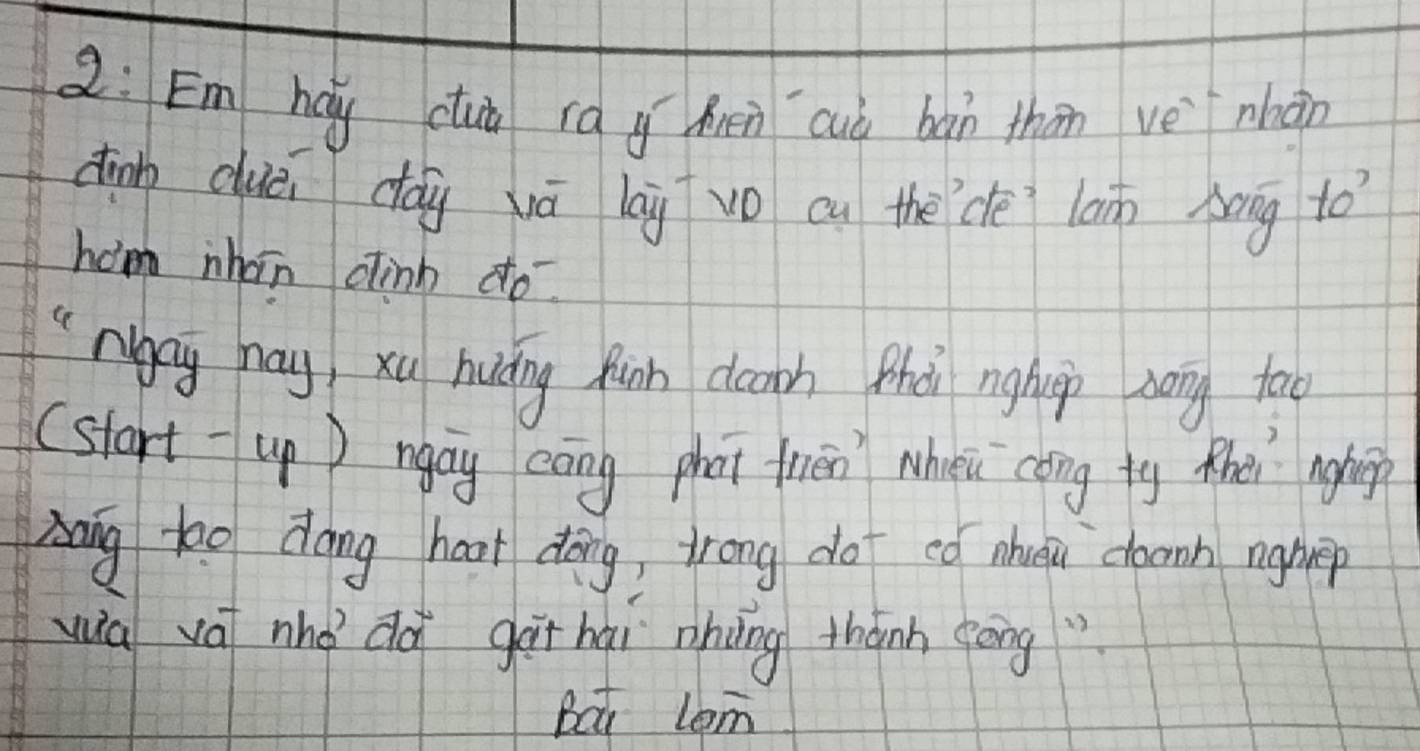 2: Em hãy đưa ra ý kiến của bản thân về nhận
định dưới đây và lấy VD cụ thể để làm sáng tỏ
hơn nhận định đó.
"Ngày nay, xu hướng kinh doanh khởi nghiệp sáng tạo
(start - up) ngày càng phát triển nhiều công ty khởi nghiệp
sáng tạo đang hoạt động, trong đó có nhiều doanh nghiệp
vừa và nhỏ đã gặt hái những thành công".
Bài làm